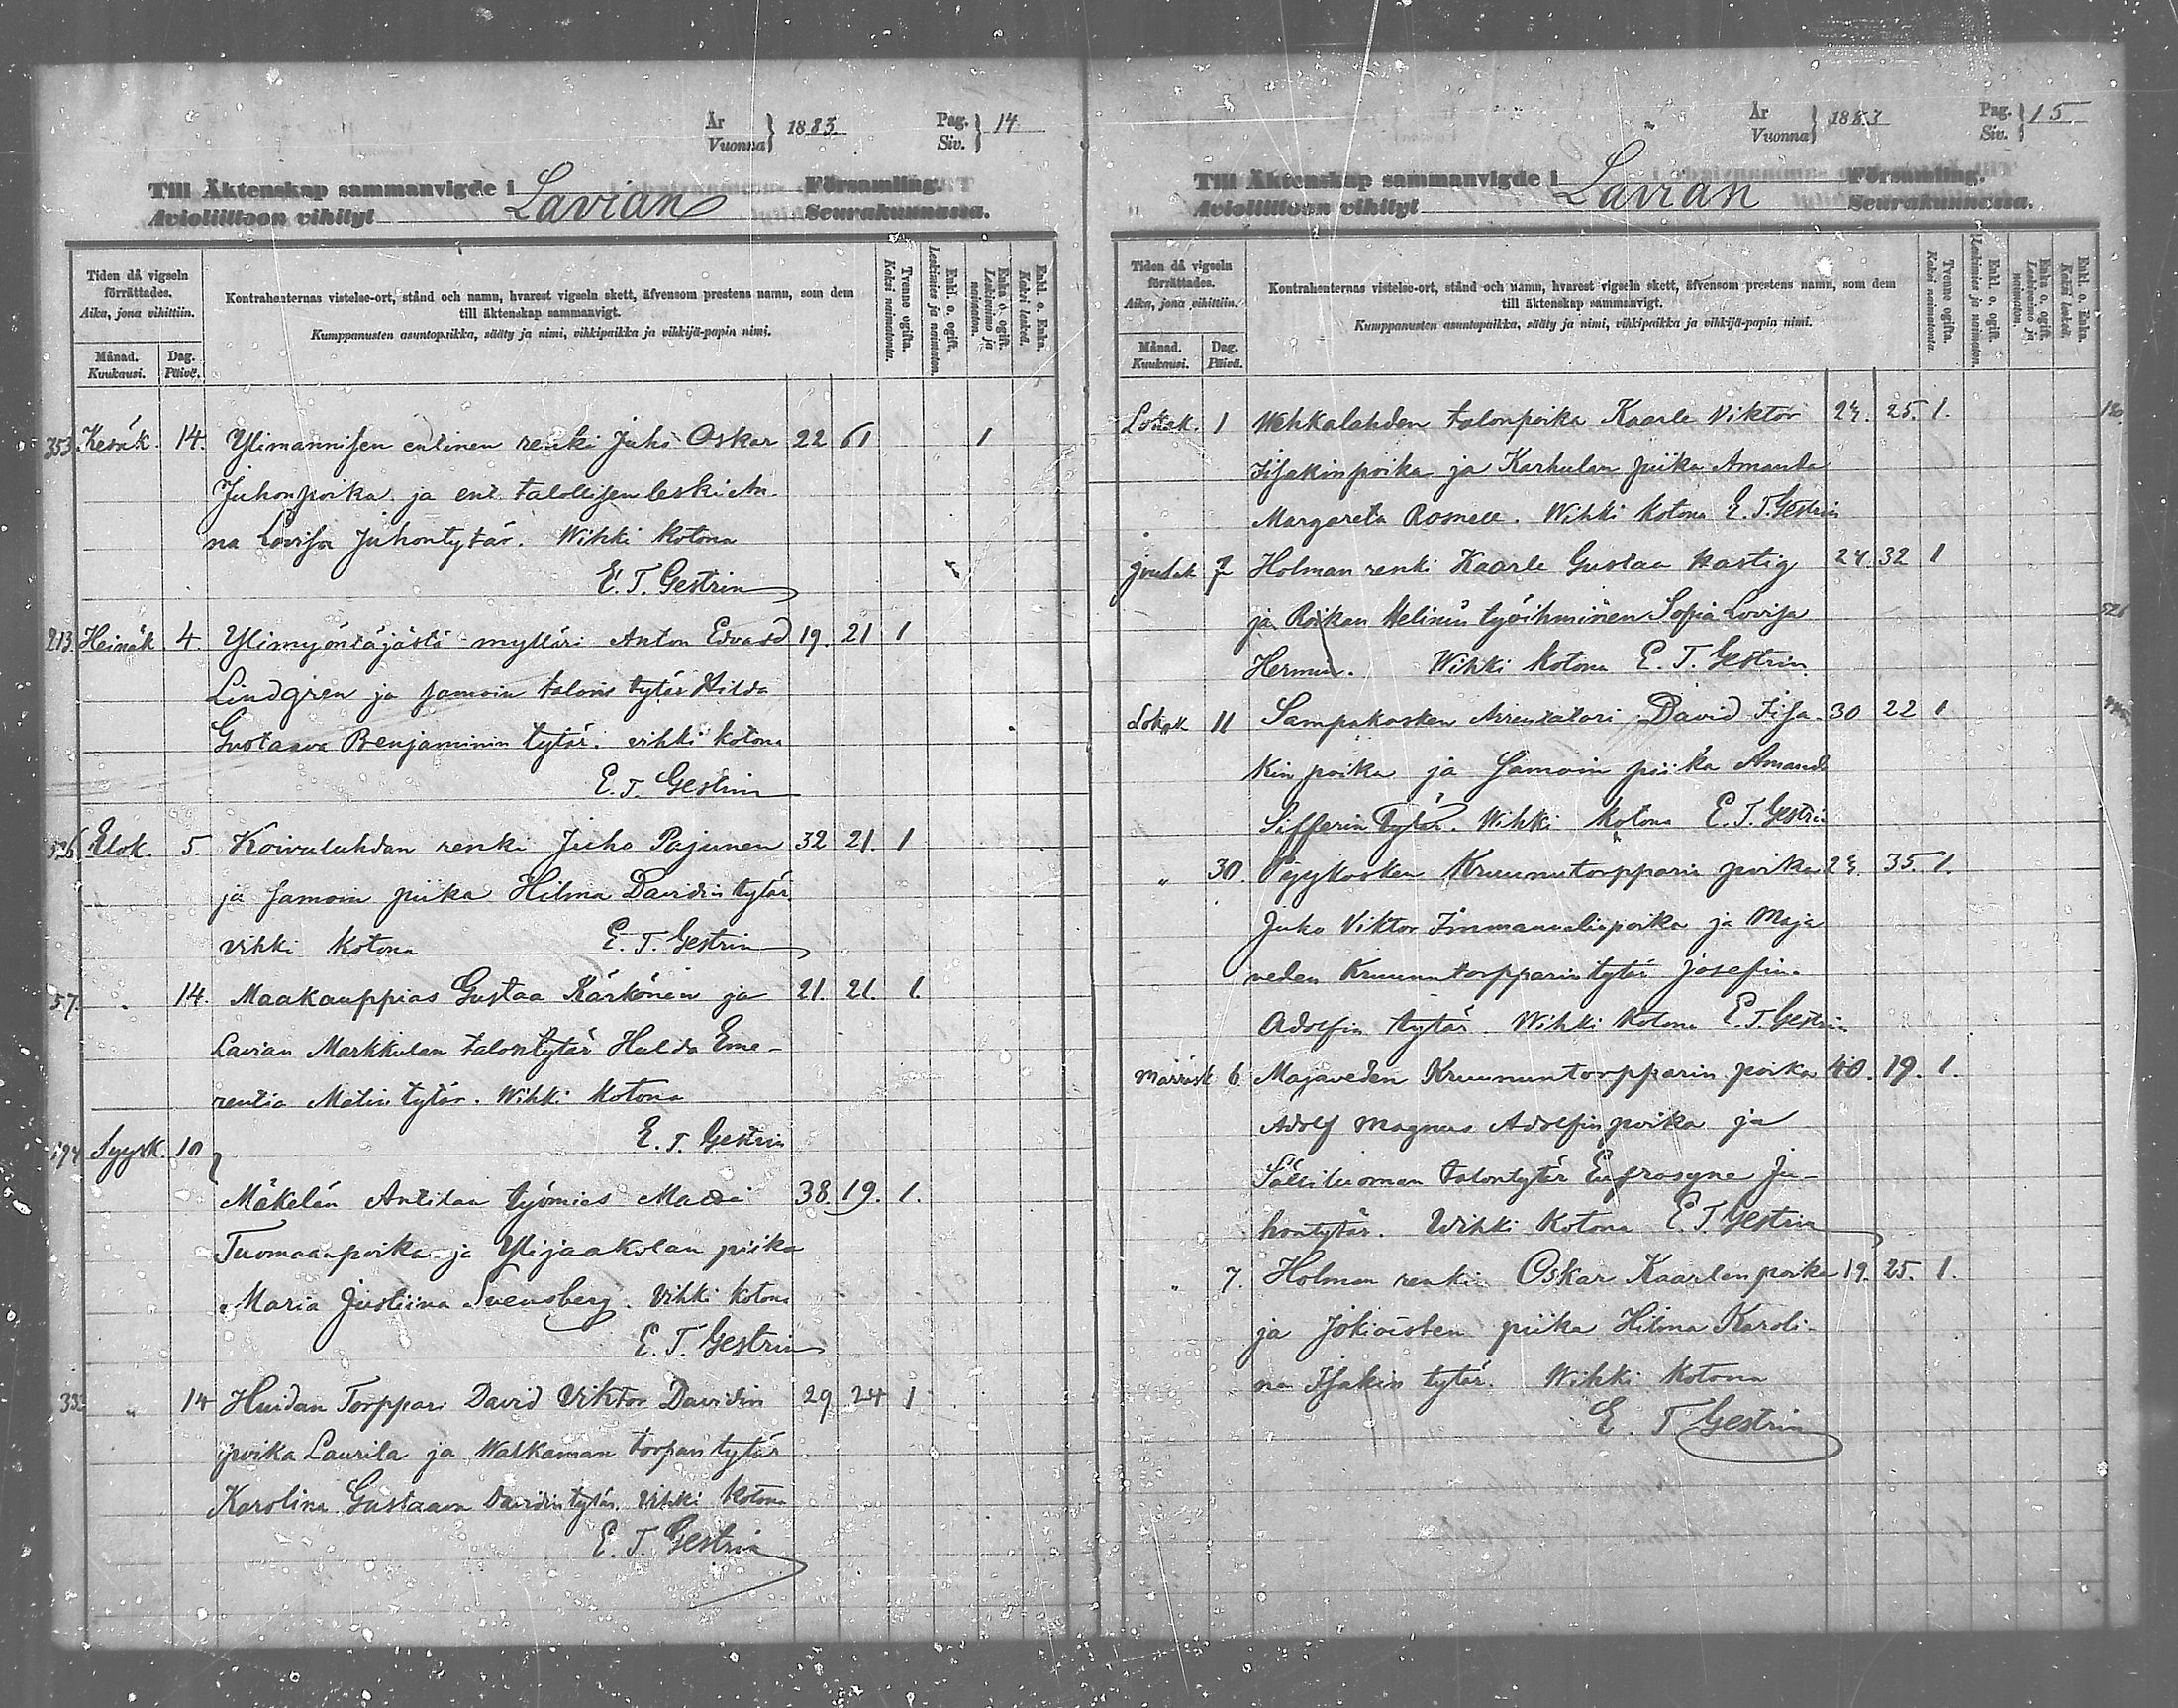 År Vuonna } 1883. Pag. Siv. } 14
Till Äktenskap sammanvigde i Lavian Församling.
Avioliittoon vihityt Seurakunnassa.
Tiden då vigseln förrättades.
Aika, jona vihittiin.
Månad. Kuukausi.
Dag. Päivä.
Kontrahenternas vistelse-ort, stånd och namn, hvarest vigseln skett, äfvensom prestens namn, som dem
till äktenskap sammanvigt.
Kumppanusten asuntopaikka, sääty ja nimi, vihkipaikka ja vihkijä-papin nimi.
Tvenne ogifta. Kaksi naimatonta.
Enkl. o. ogift. Leskimies ja naimaton.
Enka o. ogift. Leskivaimo ja naimaton.
Enkl. o. Enka. Kaksi leskeä.
353 Kesäk. 14. Ylimannisen entinen renki Juho Oskar 22 61 1
Juhonpoika ja ent. talollisen leski An
na Lovisa Juhontytär. Wihki kotona
E. T. Gestrin
213. Heinäk. 4. Ylimyöntäjästä mylläri Anton Edvard 19. 21 1
Lindgren ja samoin talonstytär Hilda
Gustaava Benjaminin tytär. vihki kotona
E. T. Gestrin
526 Elok. 5. Koivuluhdan renki Juho Pajunen 32 21. 1
ja samoin piika Hilma Davidin tytär.
vihki kotona E. T. Gestrin
57. 14. Maakauppias Gustaa Kärkönen ja 21. 21. 1.
Lavian Markkulan talontytär Hulda Eme-
rentia Matin tytär. Wihki kotona
E. T. Gestrin
194 Syysk. 10
Mäkelän Anttilan työmies Matti 38. 19. 1.
Tuomaanpoika ja Ylijaakolan piika
Maria Justiina Svensberg. Vihki kotona
E. T. Gestrin
332 " 14 Huidan Torppari David Viktor Davidin 29 24 1
poika Laurila ja Warkaman torpan tytär
Karolina Gustaava Davidin tytär. Vihki kotona
E. T. Gestrin
År Vuonna } 1883 Pag. Siv. } 15
Till Äktenskap sammanvigde i Lavian Församling.
Avioliittoon vihityt Seurakunnassa.
Tiden då vigseln förrättades.
Aika, jona vihittiin.
Månad. Kuukausi.
Dag. Päivä.
Kontrahenternas vistelse-ort, stånd och namn, hvarest vigseln skett, äfvensom prestens namn, som dem
till äktenskap sammanvigt.
Kumppanusten asuntopaikka, sääty ja nimi, vihkipaikka ja vihkijä-papin nimi.
Tvenne ogifta. Kaksi naimatonta.
Enkl. o. ogift. Leskimies ja naimaton.
Enka o. ogift. Leskivaimo ja naimaton.
Enkl. o. Enka. Kaksi leskeä.
Lokak. 1 Wehkalahden talonpoika Kaarle Viktor 25. 1.
Iisakinpoika ja Karhulan piika Amanda
Margareta Rosnell. Wihki kotona E. T. Gestrin
Jouluk 7 Holman renki Kaarle Gustaa Hastig 24 32 1
ja Roikan Melinin työihminen Sofia Lovisa
Hermin. Wihki kotona E. T. Gestrin.
Lokak 11 Sampakosken Arrentatori David Iisa- 30 22 1
kin poika ja samoin piika Amanda
Sifferin tytär. Wihki kotona E. T. Gestrin
" 30. Kruununtorpparin poika 35. 1.
Juho Viktor Immanuelinpoika ja Maja
veden Kruununtorpparin tytär Josefin.
Adolfin tytär. Wihki kotona E. T. Gestrin
Marrask 6 Majaveden Kruununtorpparin poika 40. 19. 1.
Adolf Magnus Adolfinpoika ja
talontytär Eufrosyne Ju-
hontytär. Wihki kotona E. T. Gestrin
" 7. Holman renki Oskar Kaarlenpoika 19. 25. 1.
ja Jokioisten piika Hilma Karoli-
na Isakin tytär. Wihki kotona
E. T. Gestrin